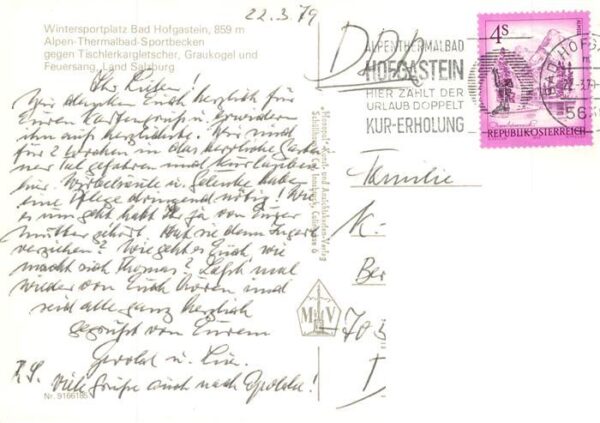 22.3.79
Wintersportplatz Bad Hofgastein, 859 m
Alpen-Thermalbad-Sportbecken
gegen Tischlerkargletscher, Graukogel und
Feuersang, Land Salzburg
Ihr Lieben!
Wir danken Euch herzlich für
Euren Kartengruß u. erwidern
ihn aufs herzlichste. Wir sind
für 2 Wochen in das herrliche Gastei-
ner Tal gefahren und
hier. Wirbelsäule u. Gelenke habe
eine Pflege dringend nötig! Wie
es uns geht habt Ihr ja von
mutter gehört. Hat sie den
verziehen? Wie geht es Euch, wie
macht sich Thomas? Laßt mal
wieder von Euch hören und
seid alle ganz herzlich
gegrüßt von Eurem
u.
P.S. Viele Grüße auch nach Apolda!
Nr. 9166185
"Monopol"-Kunst- und Ansichtskarten-Verlag
Schöllhorn & Co., Innsbruck,
M V
DDR
ALPENTHERMALBAD
HOFGASTEIN
HIER ZÄHLT DER
URLAUB DOPPELT
KUR-ERHOLUNG
4 S
REPUBLIK ÖSTERREICH
BAD HOFG
.-3.79
56
Familie
K.-
Ber
703